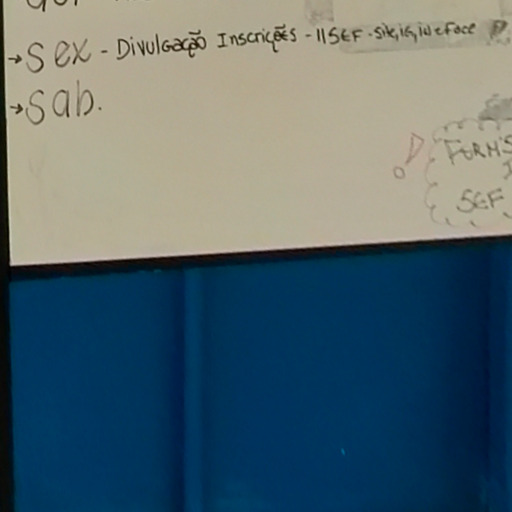 → Sex - Divulgação Inscrições - II SEF - site, ig, iw e Face
→ Sab.
! FORMS
SEF